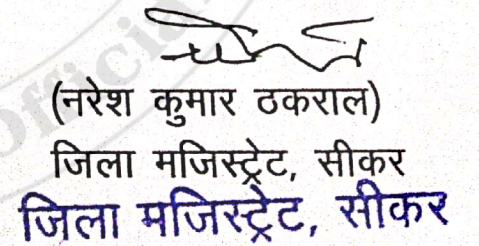 Official
(नरेश कुमार ठकराल)
जिला मजिस्ट्रेट, सीकर
जिला मजिस्ट्रेट, सीकर